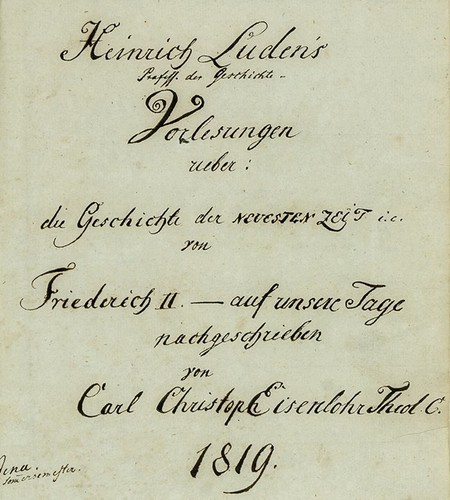 Heinrich Luden's
Profess. der Geschichte -
Vorlesungen
ueber:
die Geschichte der NEVESTEN ZEIT i.c.
von
Friederich II. — auf unsere Tage
nachgeschrieben
von
Carl Christoph Eisenlohr Theol C.
1819.
Jena.
Sommersemester.